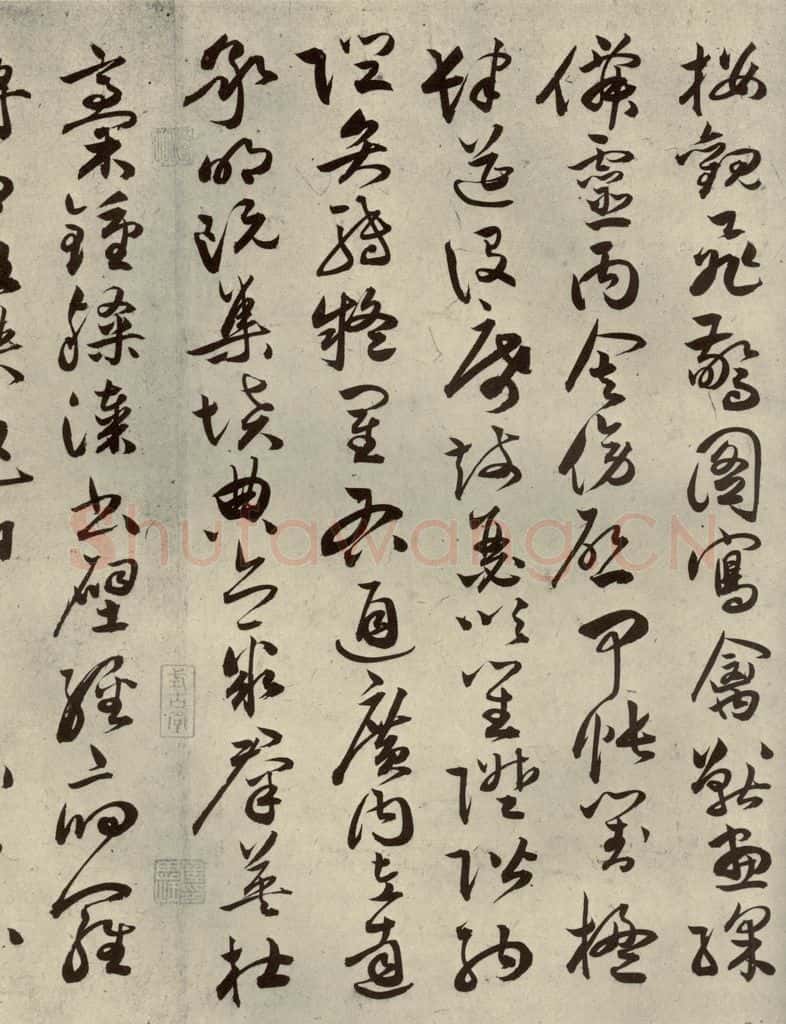 樓觀飛驚圖寫禽獸畫綵
僊靈丙舍傍啟甲帳對楹
肆筵設席鼓瑟吹笙陞階納
陛弁轉疑星右通廣內左達
承明既集墳典亦聚群英杜
稾鍾隸漆書壁經府羅
Shufawang.CN